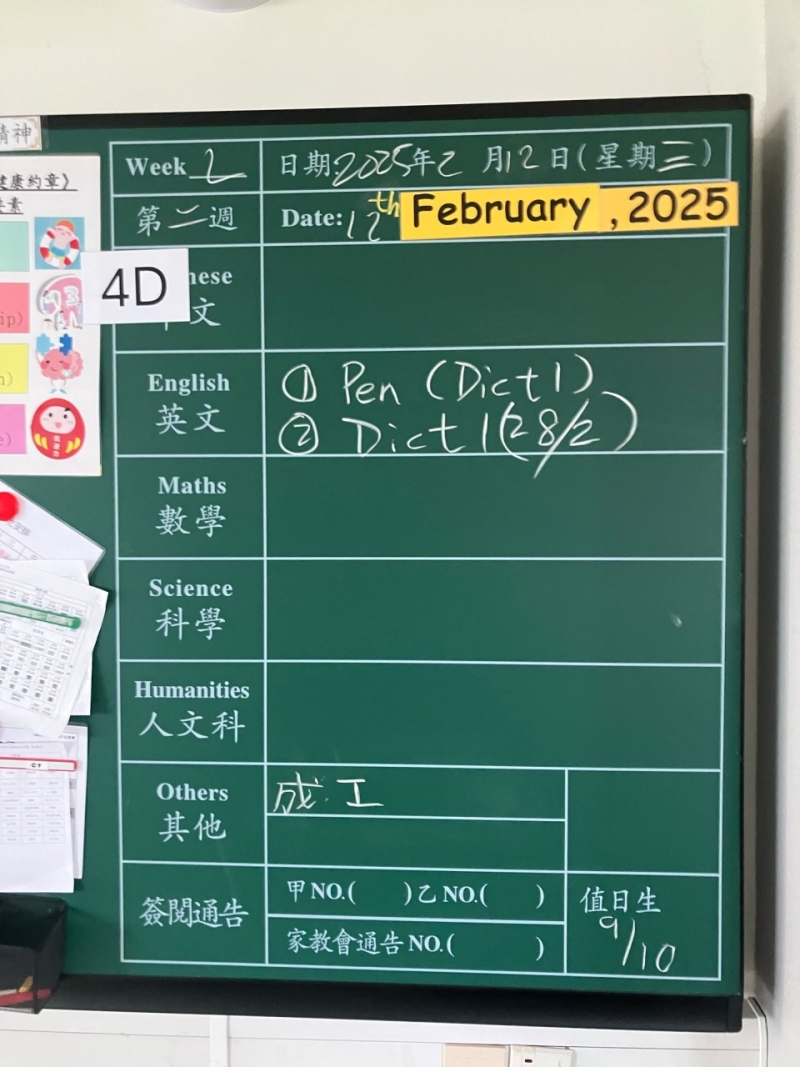 精神
健康約章》
要素
4D
Week 2
日期2025年2月12日(星期三)
第二週
Date: 12th February, 2025
nese
文
English
英文
① Pen (Dict 1)
② Dict 1(28/2)
Maths
數學
Science
科學
Humanities
人文科
Others
其他
成.工
簽閱通告
甲NO.( )乙NO.( )
家教會通告NO.( )
值日生
9/10